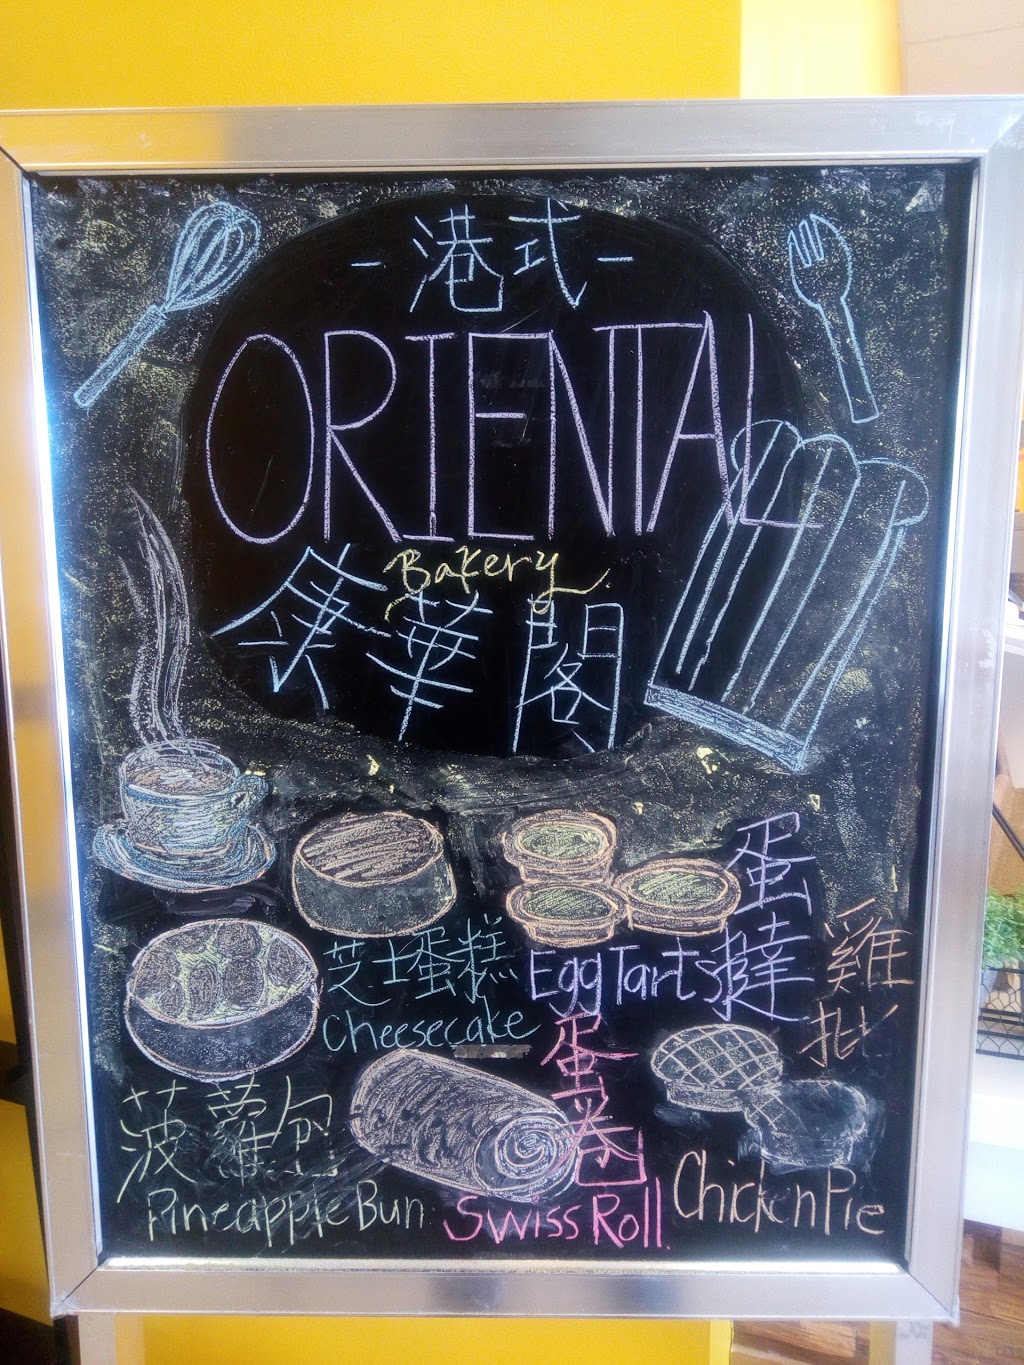 - 港式 -
ORIENTAL
Bakery
食華閣
芝士蛋糕
Cheesecake
Egg Tart
蛋撻
雞批
菠蘿包
Pineapple Bun
蛋卷
Swiss Roll
Chicken Pie